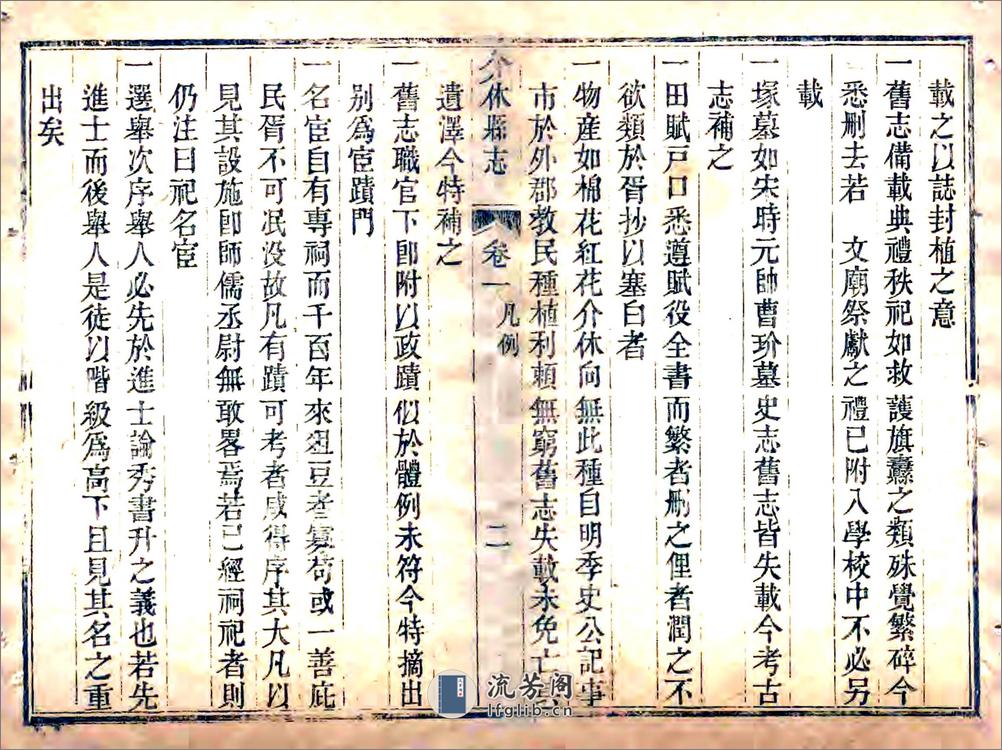 載之以誌封植之意
一舊志備載典禮秩祀如救護旗纛之類殊覺繁碎今
悉刪去若　文廟祭獻之禮已附入學校中不必另
載
一塚墓如宋時元帥曹玠墓史志舊志皆失載今考古
志補之
一田賦戶口悉遵賦役全書而繁者刪之俚者潤之不
欲類於胥抄以塞白者
一物產如棉花紅花介休向無此種自明季史公記事
市於外郡教民種植利賴無窮舊志失載未免亡
介休縣志　卷一　凡例　二
遺澤今特補之
一舊志職官下即附以政蹟似於體例未符今特摘出
別為宦蹟門
一名宦自有專祠而千百年來俎豆者寥寥苟或一善庇
民胥不可泯沒故凡有蹟可考者咸得序其大凡以
見其設施卽師儒丞尉無敢畧焉若已經祠祀者則
仍注曰祀名宦
一選舉次序舉人必先於進士論秀書升之義也若先
進士而後舉人是徒以階級為高下且見其名之重
出矣
流芳阁
lfglib.cn